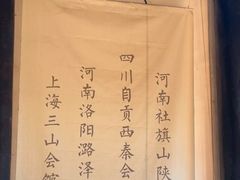 河南社旗山陕
四川自贡西秦会
河南洛阳潞泽
上海三山会馆